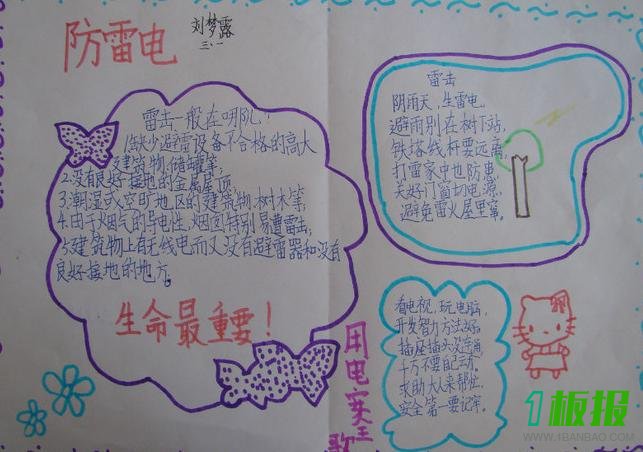 防雷电
刘梦露
三.一
雷击一般在哪儿?
1.缺少避雷设备不合格的高大
建筑物、储罐等;
2.没有良好接地的金属屋顶;
3.潮湿或空旷地区的建筑物、树木等;
4.由于烟气的导电性,烟囱特别易遭雷击;
5.建筑物上有无线电而又没有避雷器和没有
良好接地的地方。
生命最重要!
雷击
阴雨天,生雷电,
避雨别在树下站,
铁塔线杆要远离,
打雷家中也防患,
关好门窗切电源,
避免雷火屋里窜。
用电安全歌
看电视,玩电脑,
开发智力方法好。
插座插头没接通,
千万不要自己弄。
求助大人来帮忙,
安全第一要记牢。
1板报
WWW.1BANBAO.COM